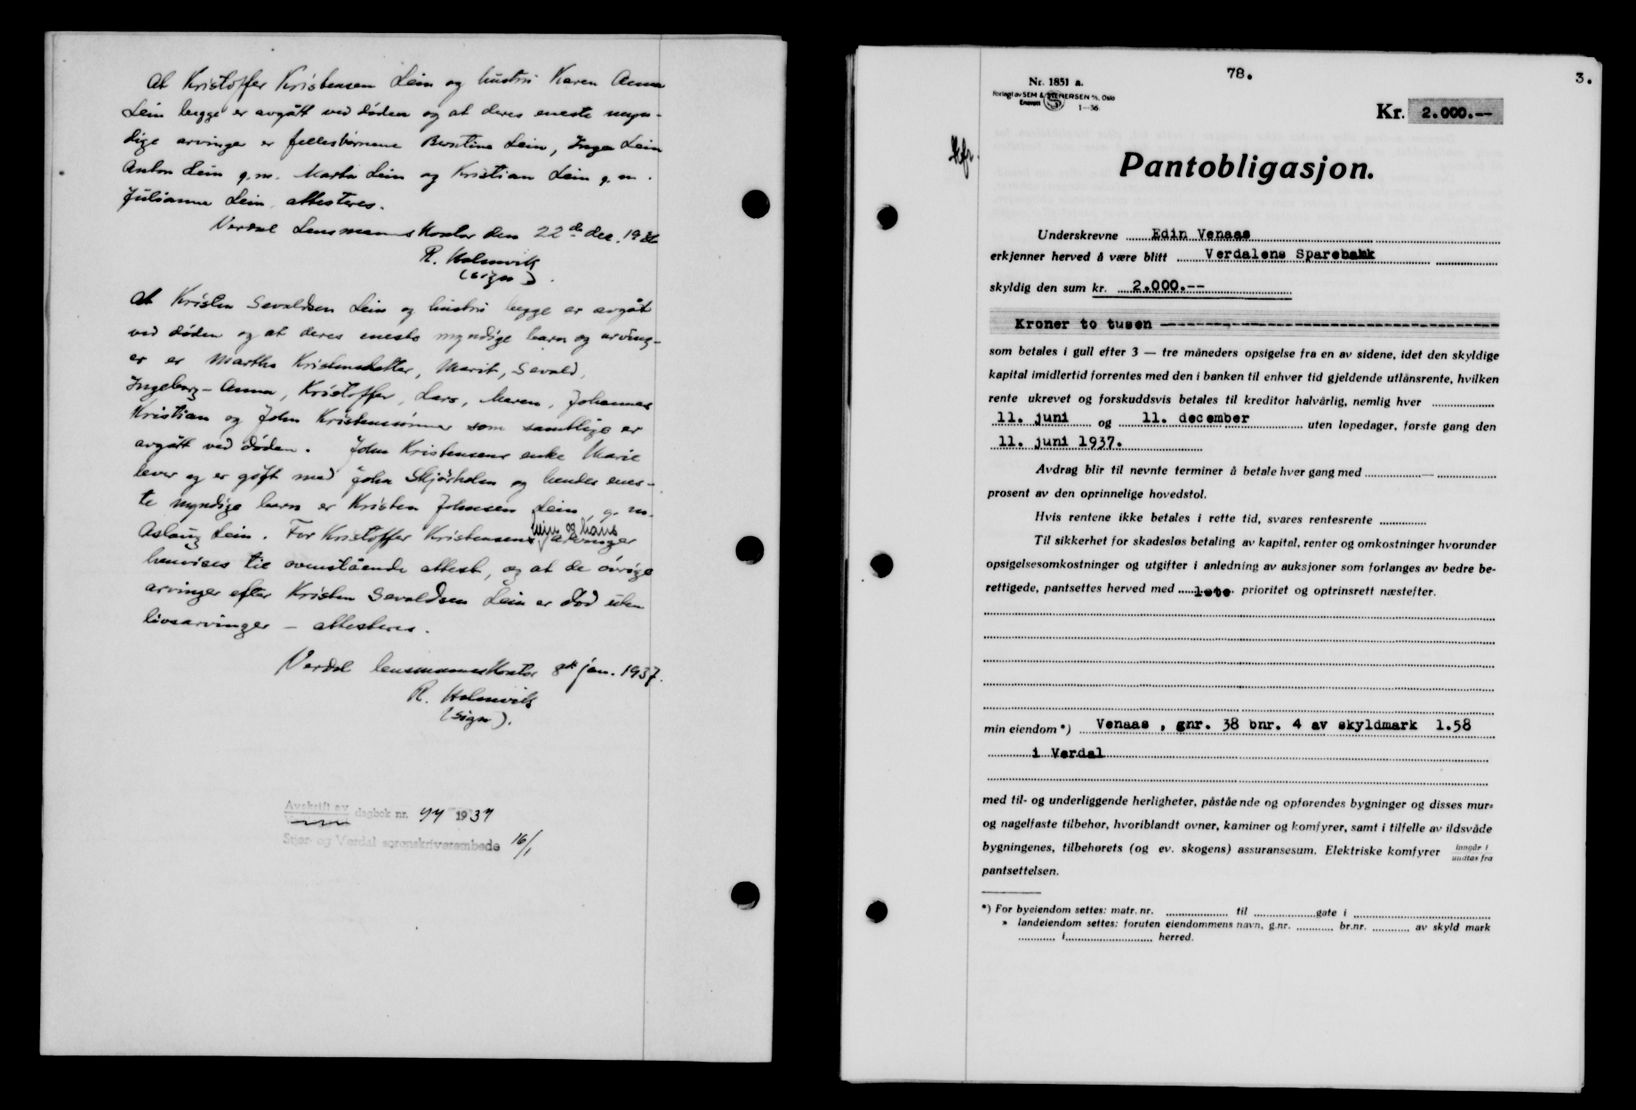 At Kristoffer Kristensen Lein og hustru Karen Anna
Lein begge er avgått ved døden og at deres eneste myn-
dige arvinger er fellesbørnene Berntine Lein, Inga Lein
Anton Lein g.m. Marta Lein og Kristian Lein g.m.
Julianna Lein, attesteres.
Verdal Lensmannskontor den 22de des. 1936
R. Holmvik
(sign).
At Kristen Sevaldsen Lein og hustru begge er avgått
ved døden og at deres eneste myndige barn og arving-
er er Martha Kristensdatter, Marit, Sevald,
Ingeborg-Anna, Kristoffer, Lars, Maren, Johannes
Kristian og John Kristensønner som samtlige er
avgått ved døden. John Kristensens enke Marie
lever og er gift med John Skjørholm og hendes enes-
te myndige barn er Kristen Johnsen Lein, g.m.
Aslaug Lein. For Kristoffer Kristensens Lein og hans arvinger
henvises til ovenstående attest, og at de øvrige
arvinger efter Kristen Sevaldsen Lein er død uten
livsarvinger – attesteres.
Verdal lensmannskontor 8de jan. 1937.
R. Holmvik
(sign).
Avskrift av dagbok nr. 44 1937
Stjør- og Verdal sorenskriverembede 16/1
78.
3.
Nr. 1851 a.
Forlagt av SEM & STENERSEN A/S, Oslo
Enerett 1—36.
Kr. 2.000.--
Pantobligasjon.
Underskrevne Edin Venaas
erkjenner herved å være blitt Verdalens Sparebank
skyldig den sum kr. 2.000.--
Kroner to tusen
som betales i gull efter 3 — tre måneders opsigelse fra en av sidene, idet den skyldige
kapital imidlertid forrentes med den i banken til enhver tid gjeldende utlånsrente, hvilken
rente ukrevet og forskuddsvis betales til kreditor halvårlig, nemlig hver
11. juni og 11. december uten løpedager, første gang den
11. juni 1937.
Avdrag blir til nevnte terminer å betale hver gang med
prosent av den oprinnelige hovedstol.
Hvis rentene ikke betales i rette tid, svares rentesrente
Til sikkerhet for skadesløs betaling av kapital, renter og omkostninger hvorunder
opsigelsesomkostninger og utgifter i anledning av auksjoner som forlanges av bedre be-
rettigede, pantsettes herved med 1ste prioritet og optrinsrett næstefter.
min eiendom *) Venaas , gnr. 38 bnr. 4 av skyldmark 1.58
i Verdal
med til- og underliggende herligheter, påstående og opførendes bygninger og disses mur-
og nagelfaste tilbehør, hvoriblandt ovner, kaminer og komfyrer, samt i tilfelle av ildsvåde
bygningenes, tilbehørets (og ev. skogens) assuransesum. Elektriske komfyrer inngår i
undtas fra
pantsettelsen.
*) For byeiendom settes: matr. nr. til gate i
» landeiendom settes: foruten eiendommens navn, g.nr. br.nr. av skyld mark
i herred.